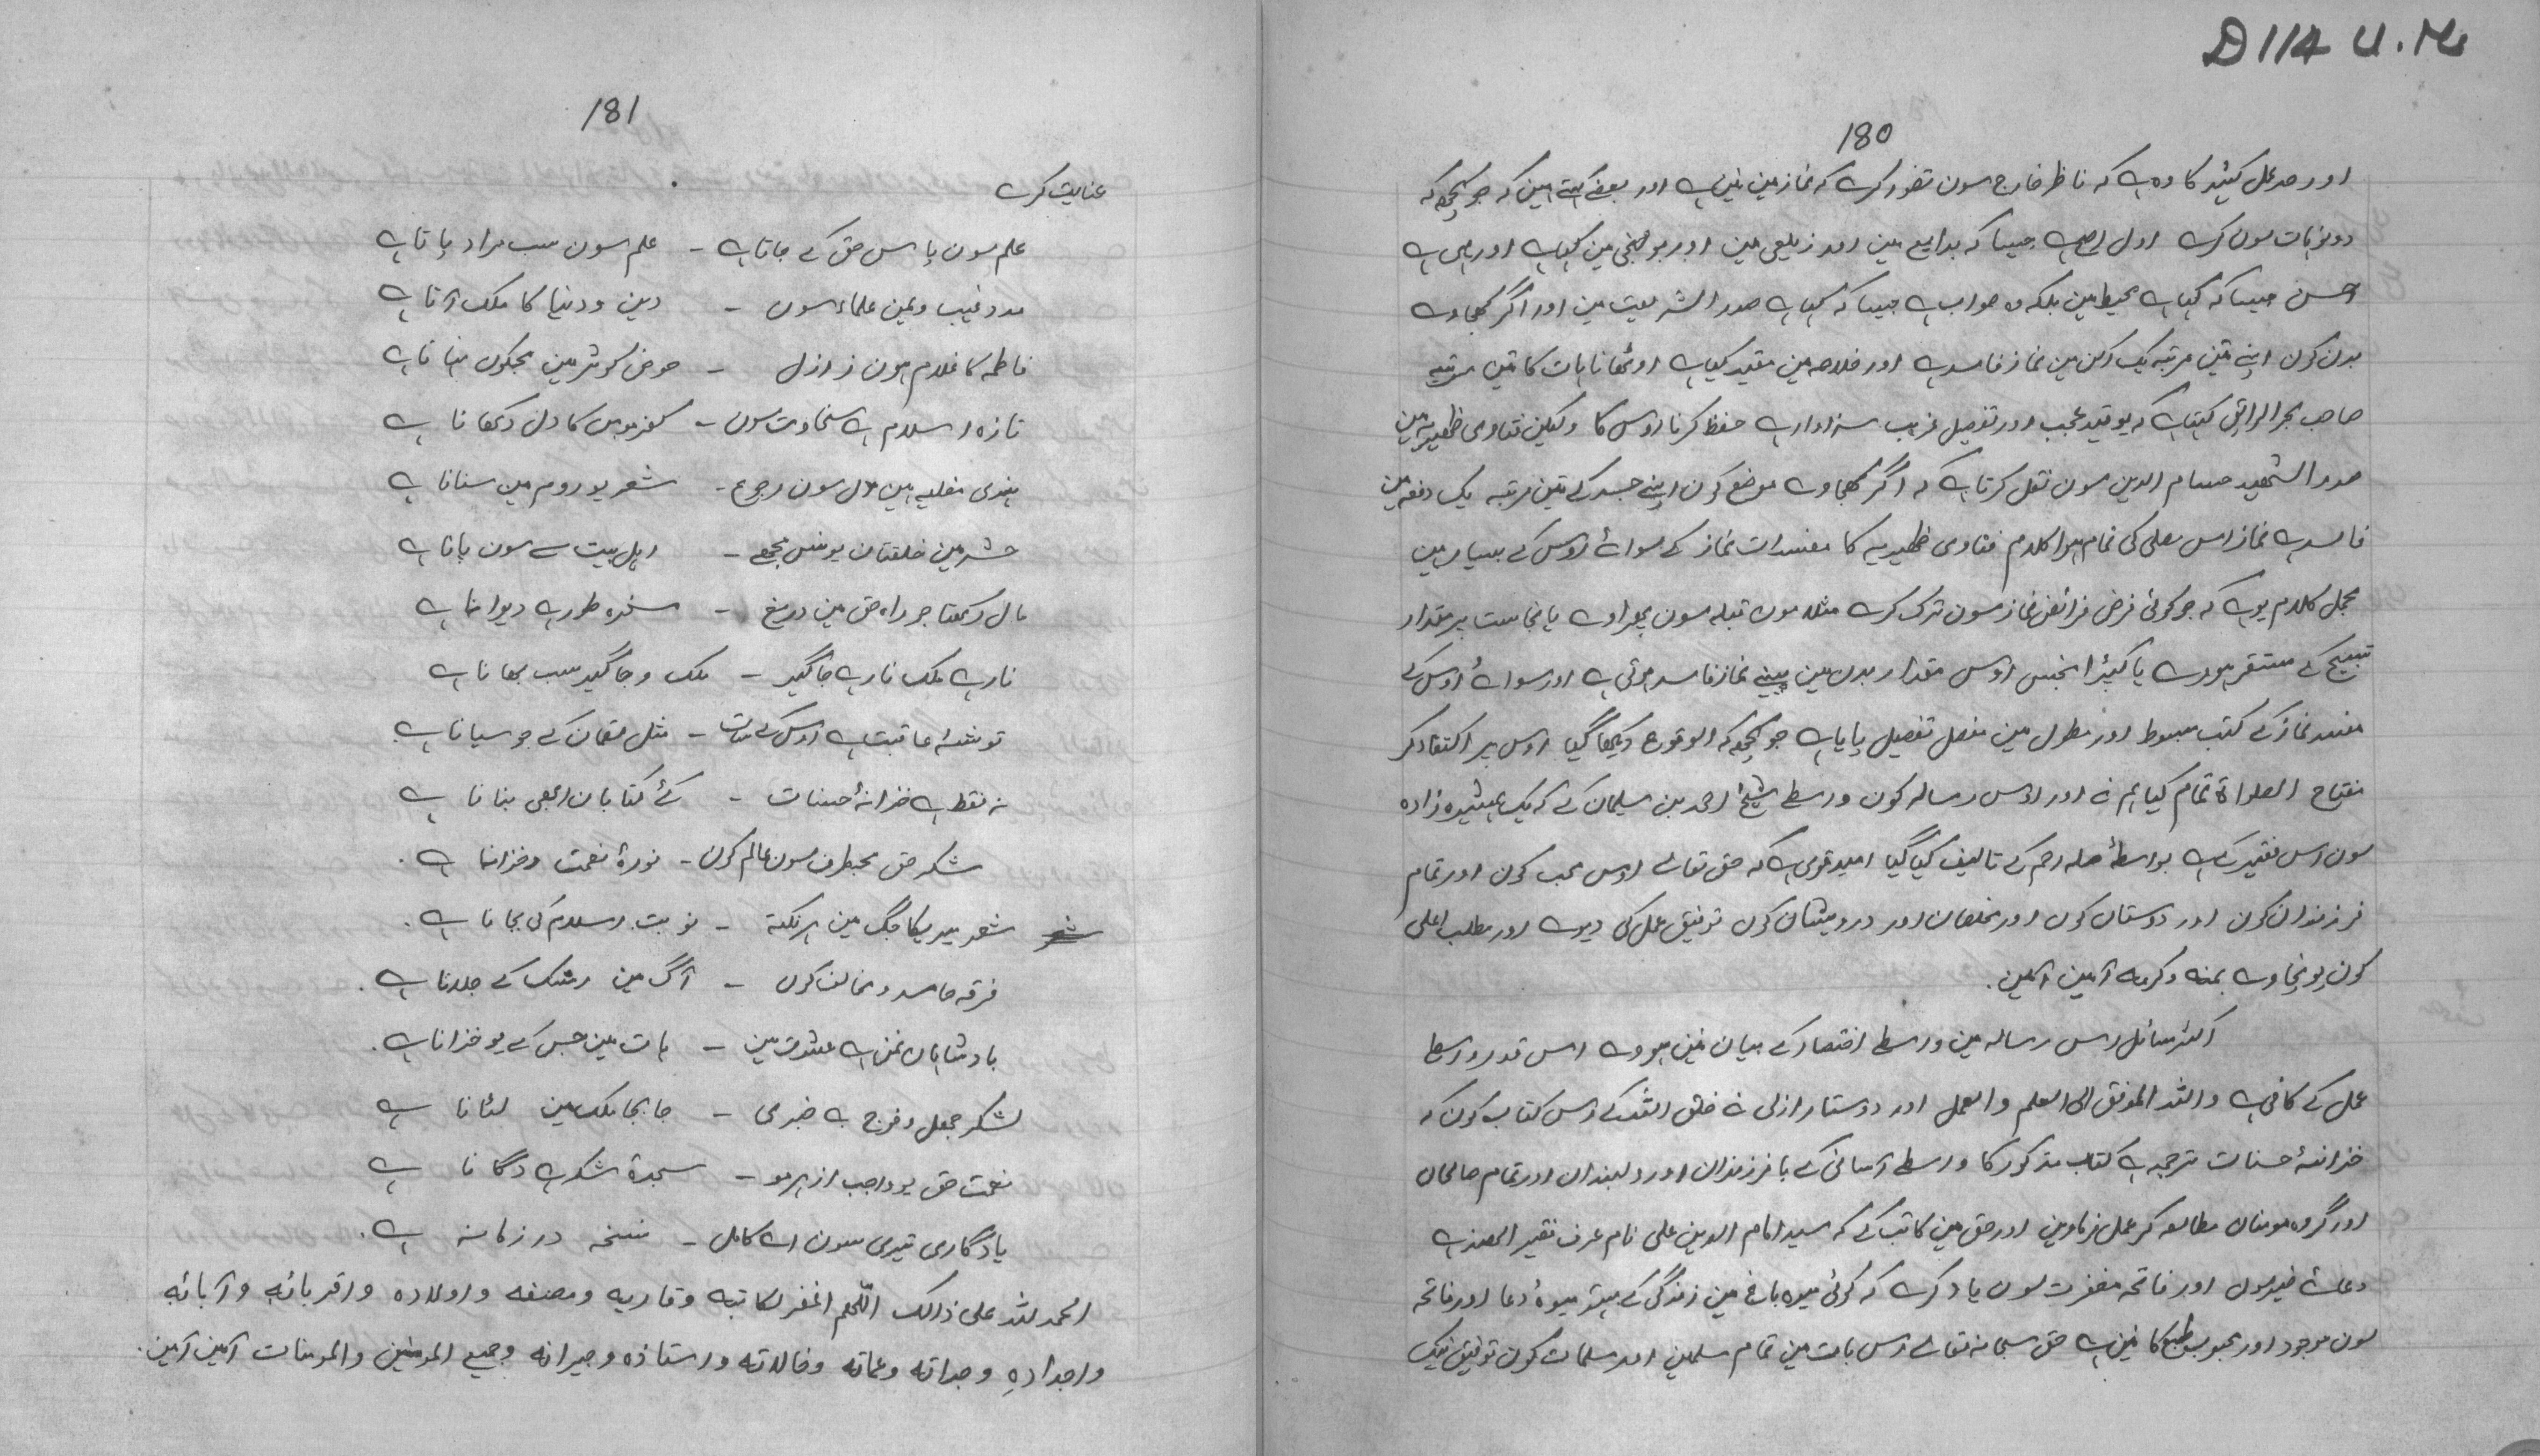 D 114 U.Ms
180
اور حد عمل کثیر کا وہ ہے کہ ناظر خارج سون تصور کرے کہ نماز مین نین ہے اور بعضے کہتے ہین کہ جو کچھ کہ
دونو ہات سون کرے اول اصح ہے جیسا کہ بدایع مین اور زیلعی مین اور بو لجنی مین کہیا ہے اور یہی ہے
احسن جیسا کہ کہیا ہے محیط مین بلکہ وہ صواب ہے جیسا کہ کہیا ہے صدر الشریعت مین اور اگر کھجاوے
بدن کون اپنے تین مرتبہ یک رکن مین نماز فاسد ہے اور خلاصہ مین مقید کیا ہے اوٹھانا ہات کا تین مرتبہ
صاحب بحر الرائق کہتا ہے کہ یو قید عجب اور تفصیل غریب سزاوار ہے حفظ کرنا اوس کا ولیکن فتاوی ظہیریہ مین
صدر الشہید حسام الدین سون نقل کرتا ہے کہ اگر کھجاوے موضع کون اپنے جسد کے تین مرتبہ یک دفعہ مین
فاسد ہے نماز اس مصلی کی تمام ہوا کلام فتاوی ظہیریہ کا مفسدات نماز کے سوائے اوس کے بسیار ہین
مجمل کلام یو ہے کہ جو کوئی فرض فرائض نماز سون ترک کرے مثلا مون قبلہ سون پھراوے یا نجاست پر مقدار
تسبیح کے مستقر ہووے یا کپڑا نجس اوس مقدار بدن مین پہنے نماز فاسد ہوتی ہے اور سوائے اوس کے
مفسد نماز کے کتب مبسوط اور مطول مین مفصل تفصیل پایا ہے جو کچھ کہ الوقوع دیکھا گیا اوس پر اکتفا کر
مفتاح الصلواۃ تمام کیا ہم نے اور اوس رسالہ کون واسطے شیخ احمد بن سلیمان کے کہ یک ہمشیرہ زادہ
سون اس فقیر کے ہے بواسطۂ صلہ رحم کے تالیف کیا گیا امید قوی ہے کہ حق تعالے اوس محب کون اور تمام
فرزندان کون اور دوستان کون اور مخلصان اور درویشان کون توفیق عمل کی دیوے اور مطلب اعلی
کون پونچاوے بمنہ وکرمہ آمین آمین.
اکثر مسائل اس رسالہ مین واسطے اختصار کے بیان نین ہووے اس قدر واسطے
عمل کے کافی ہے واللہ الموفق الی العلم والعمل اور دوستار ازلی نے خلق اللہ کے اس کتاب کون کہ
خزانۂ حسنات ترجمہ ہے کتاب مذکور کا واسطے آسانی کے با فرزندان اور دلبندان اور تمام صالحان
اور گروہ مومنان مطالعہ کر عمل فرماوین اور حق مین کاتب کے کہ سید امام الدین علی نام عرف فقیر
دعائے خیر سون اور فاتحہ مغفرت سون یاد کرے کہ کوئی میوہ باغ مین زندگی کے بہتر میوۂ دعا اور فاتحہ
سون موجود اور محبوب طبع کا نین ہے حق سبحانہ تعالے اس بات مین تمام مسلمین اور مسلمات کون توفیق نیک
181
عنایت کرے
علم سون پاس حق کے جاتا ہے - علم سون سب مراد پاتا ہے
مدد غیب ویمن علماء سون - دین ودنیا کا ملک آتا ہے
فاطمہ کا غلام ہون ز ازل - حوض کوثر مین مجکون
تازہ اسلام ہے سخاوت سون - کا دل دکھاتا ہے
ہندی مغلیہ ہین سون رجوع - شعر یو روم مین سناتا ہے
حشر مین خلقتان مجھے - اہل بیت سے سون پاتا ہے
مال رکھتا جو راہ حق مین دریغ - مسخرہ طور ہے دیوانا ہے
نا رہے ملک نا رہے جاگیر - ملک وجاگیر سب بھانا ہے
توشۂ عاقبت ہے اوس کے سات - مثل لقمان کے جو سیانا ہے
نہ فقط ہے خزانۂ حسنات - کئے کتابان ابھی بنانا ہے
شکر حق سون عالم کون - نعمت وخزانا ہے.
شعر میر یکا جگ مین ہر نکتہ - نوبت اسلام کی بجاتا ہے.
فرقہ حاسد و مخالف کون - آگ مین رشک کے جلاتا ہے.
بادشاہان نمن ہے عشرت مین - ہات مین جس کے یو خزانا ہے.
لشکر جہل و فوج بے خبری - جابجا ملک مین لٹاتا ہے
نعمت حق یو واجب از ہر مو - سجدۂ شکر ہے دگانا ہے
یادگاری تیری سون اے کامل - نسخہ در زمانہ ہے.
الحمد للہ علی ذالک اللہم اغفر لکاتبہ وقاریہ ومصنفہ واولادہ واقربائہ وآبائہ
واجدادہ وجداتہ وعماتہ وخالاتہ واستاذہ وجیرانہ وجمیع المومنین والمومنات آمین آمین.